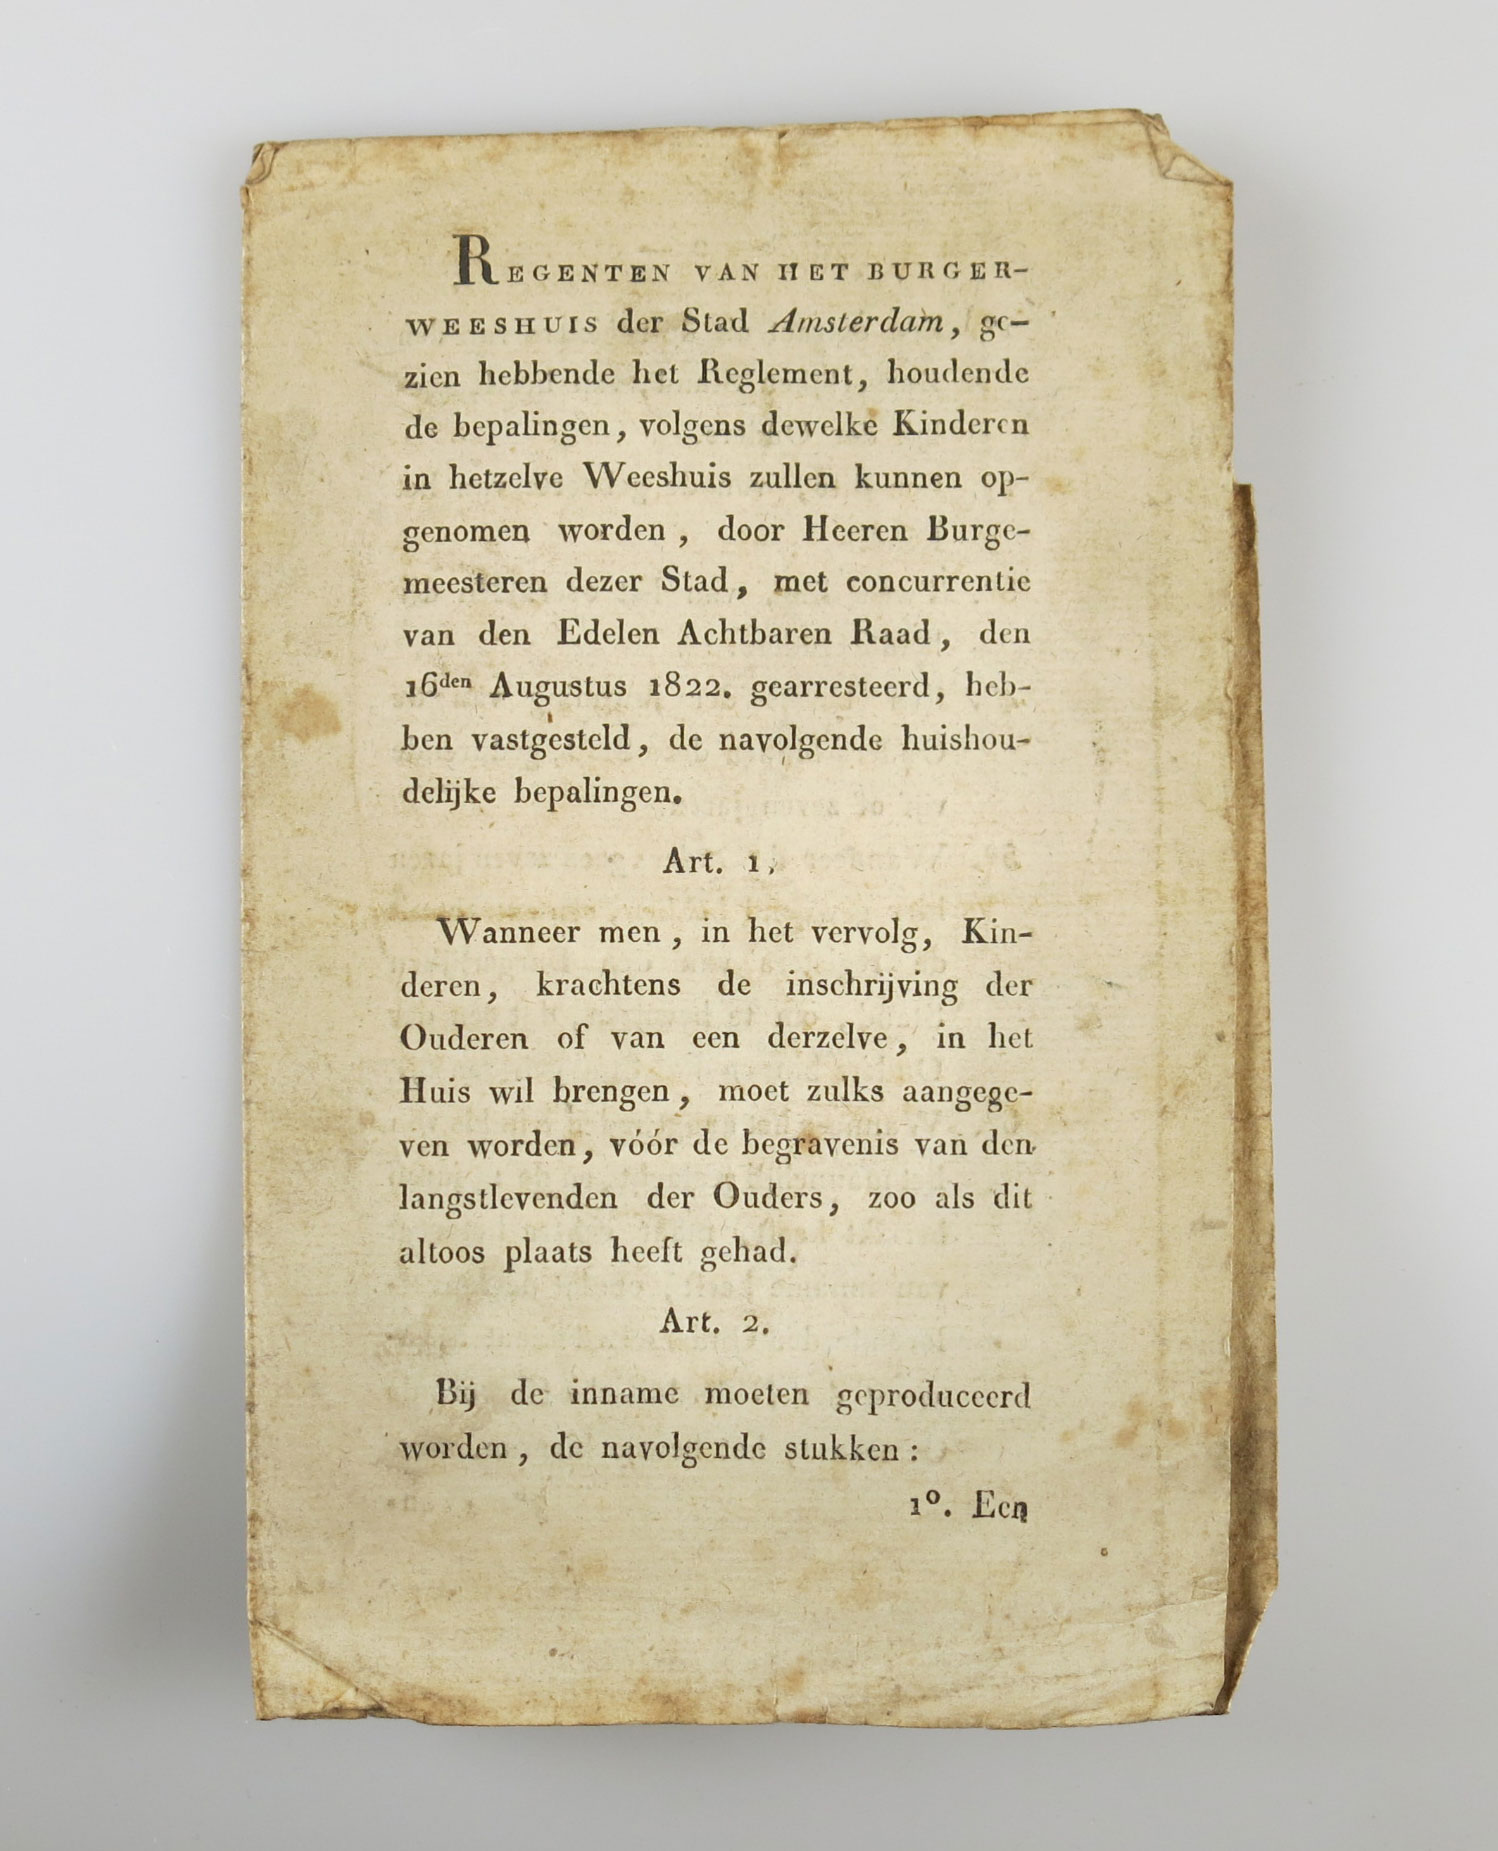 REGENTEN VAN HET BURGER-
WEESHUIS der Stad Amsterdam, ge-
zien hebbende het Reglement, houdende
de bepalingen, volgens dewelke Kinderen
in hetzelve Weeshuis zullen kunnen op-
genomen worden, door Heeren Burge-
meesteren dezer Stad, met concurrentie
van den Edelen Achtbaren Raad, den
16den Augustus 1822. gearresteerd, heb-
ben vastgesteld, de navolgende huishou-
delijke bepalingen.
Art. 1.
Wanneer men, in het vervolg, Kin-
deren, krachtens de inschrijving der
Ouderen of van een derzelve, in het
Huis wil brengen, moet zulks aangege-
ven worden, vóór de begravenis van den
langstlevenden der Ouders, zoo als dit
altoos plaats heeft gehad.
Art. 2.
Bij de inname moeten geproduceerd
worden, de navolgende stukken:
1º. Een